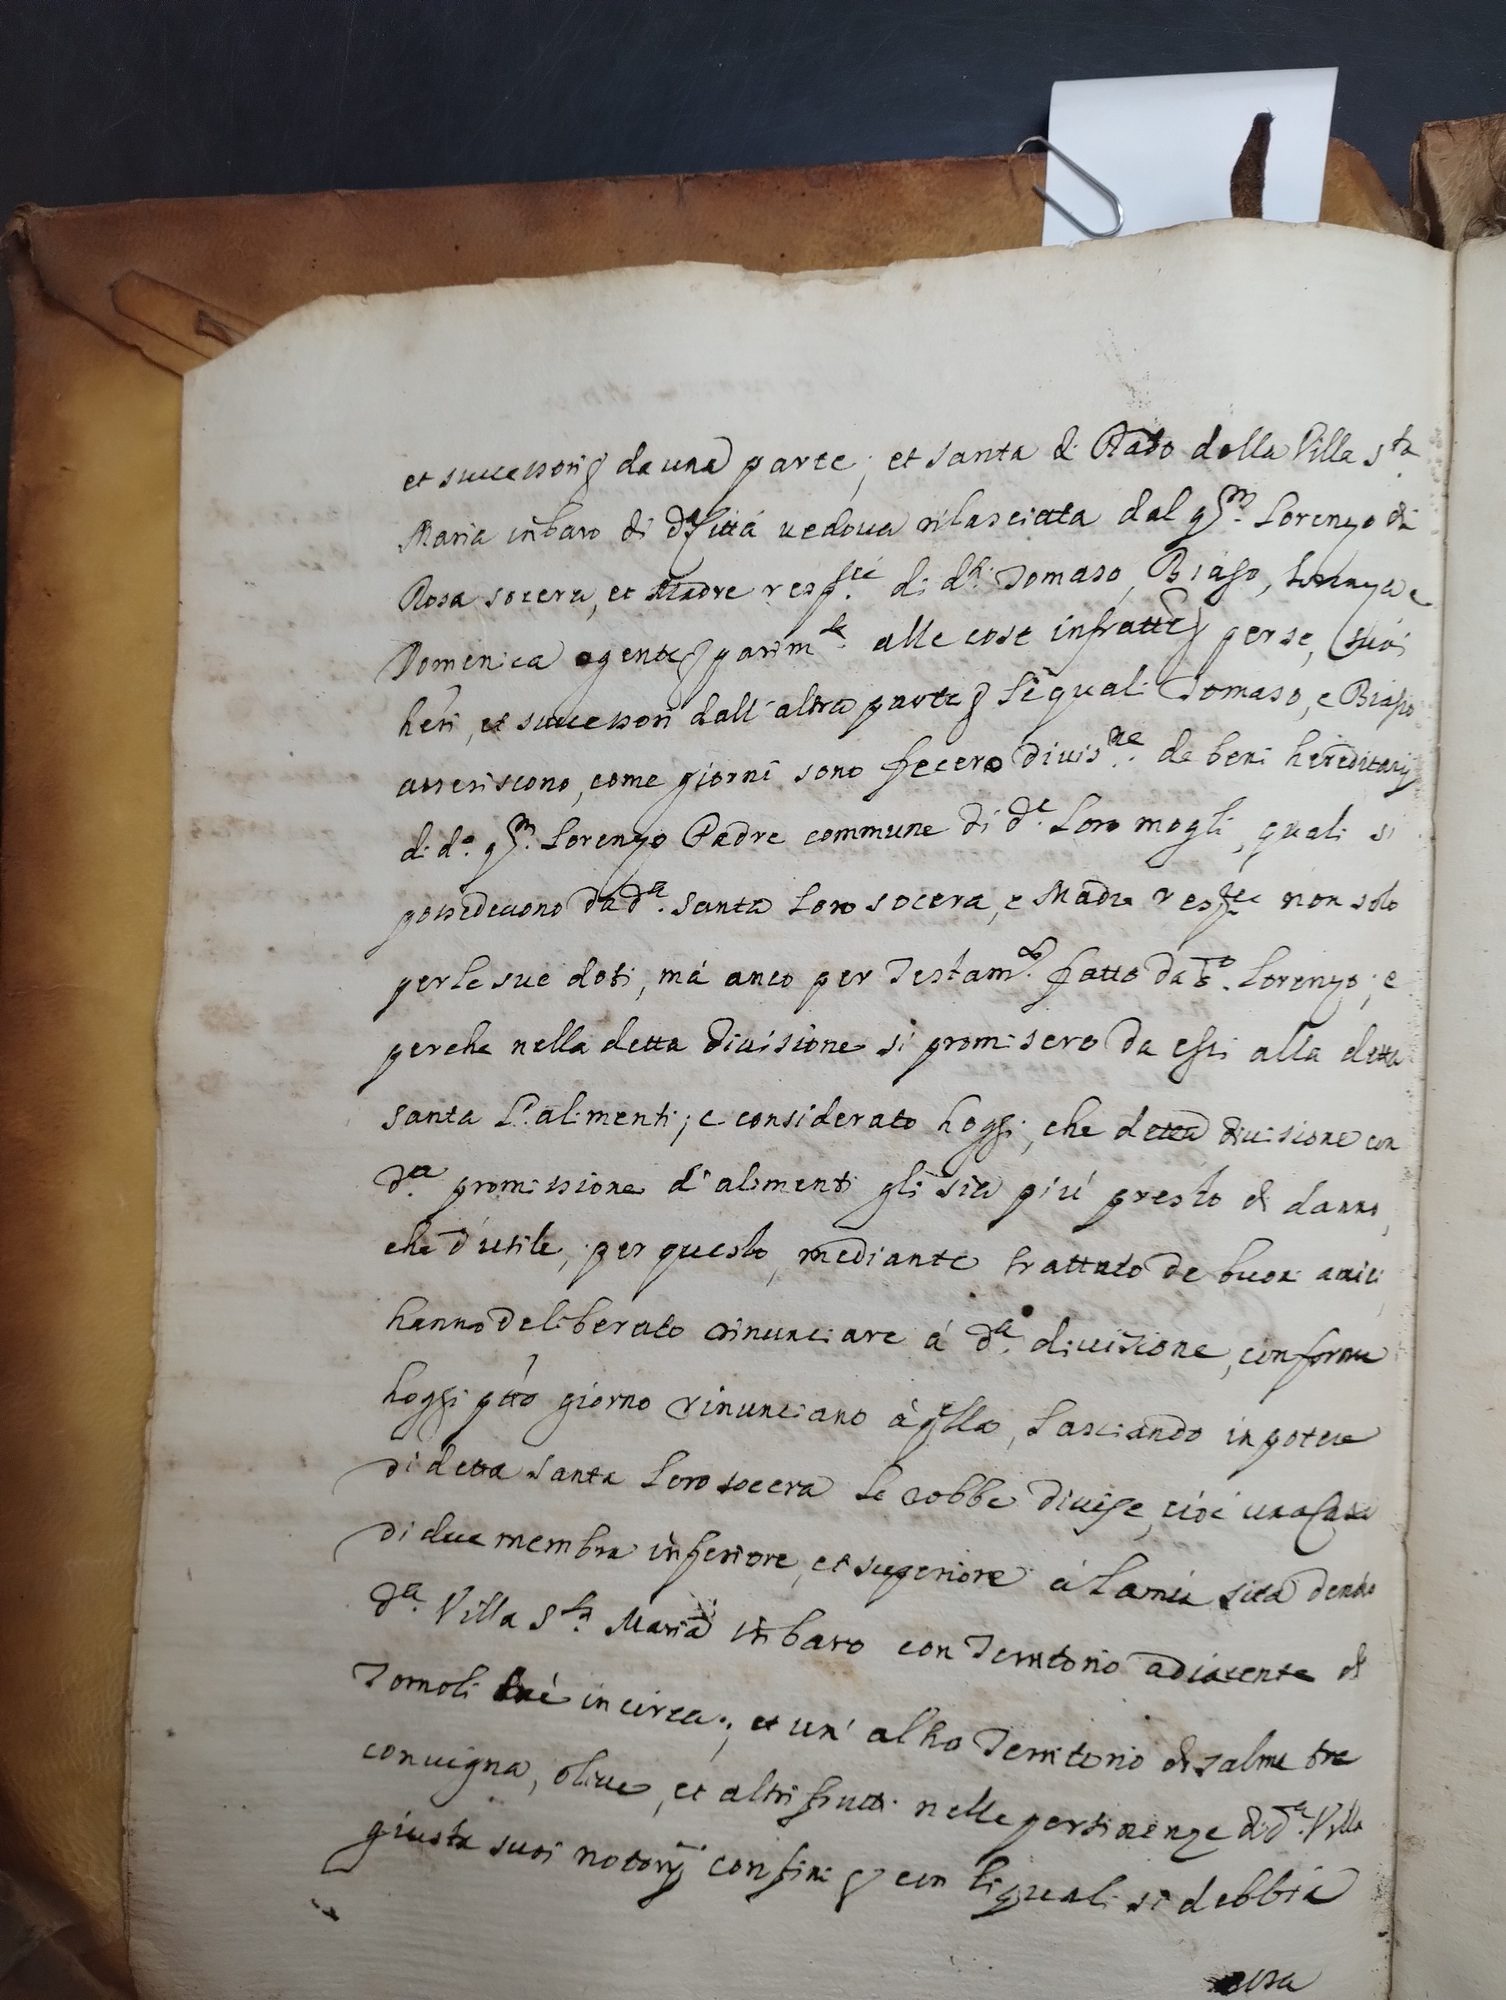 et successori da una parte; et Santa di Rado della Villa S.ta
Maria inbaro di d.a Città vedova rilasciata dal q.m Lorenzo di
Rosa socera, et Madre resp.te di d.ti Tomaso, Biaso, e
Domenica agente parim.te alle cose infratte per se, suoi
heri, et successori dall'altra parte li quali Tomaso, e Biasio
asseriscono, come giorni sono fecero divis.ne de beni hereditarij
di d.o q.m Lorenzo Padre commune di d.e loro mogli, quali si
possedevono da d.a Santa loro socera, e Madre resp.te non solo
per le sue doti, má anco per Testam.to fatto da d.o Lorenzo; e
perche nella detta divisione si promisero da essi alla detta
Santa l'alimenti; e considerato hoggi, che detta divisione con
d.a promissione d'alimenti gli sia piú presto di danno,
che d'utile, per questo, mediante trattato de buoni amici
hanno deliberato rinunciare á d.a divisione, conforme
hoggi p̃tto giorno rinunciano à q̃lla, lasciando in potere
di detta Santa loro socera le robbe divise, cioè una Casa
di due membra inferiore, et superiore á lamia sita dentro
d.a Villa S.ta Maria inbaro con Territorio adiacente di
Tomoli tré incirca; et un' altro Territorio di salme tre
con vigna, olive, et altri frutti nelle pertinenze di d.a Villa
giusta suoi notorij confini con li quali si debbia